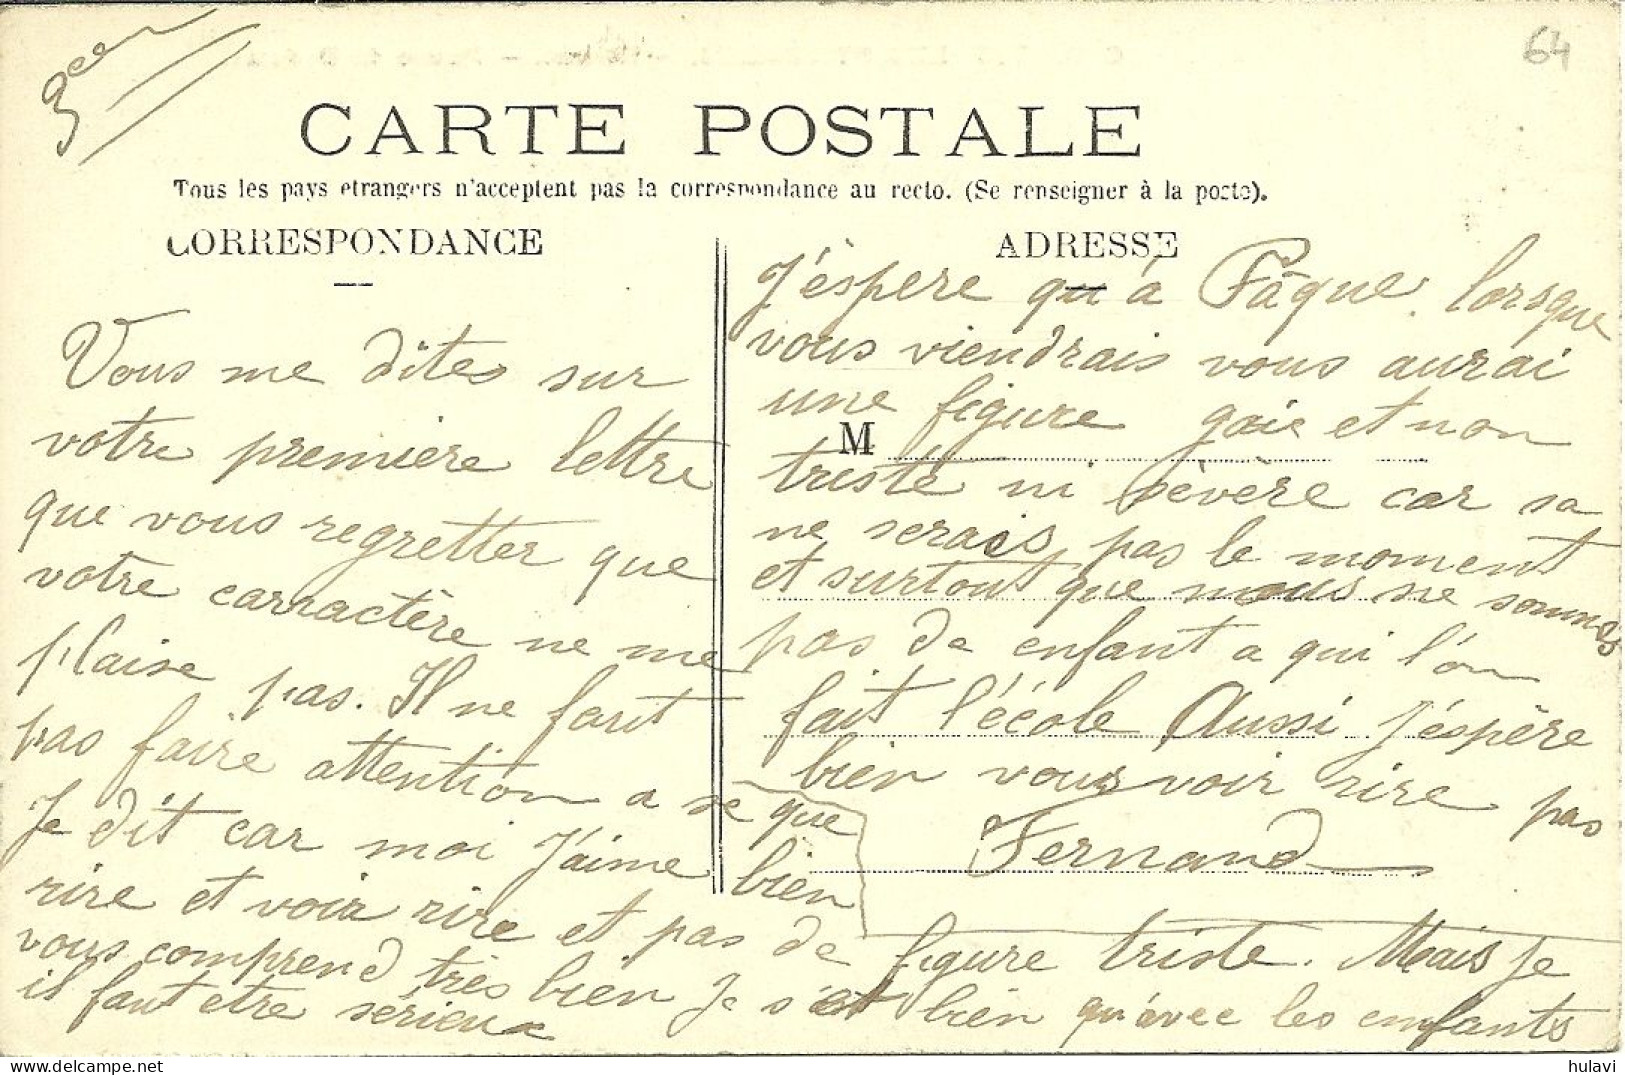 3eme
64
CARTE POSTALE
Tous les pays etrangers n'acceptent pas la correspondance au recto. (Se renseigner à la poste).
CORRESPONDANCE
Vous me dites sur
votre premiere lettre
que vous regretter que
votre carractère ne me
plaise pas. Il ne faut
pas faire attention a se que
Je dit car moi J'aime bien
rire et voir rire et pas de figure triste. Mais Je
vous comprend très bien Je s'est bien qu'avec les enfants
il faut etre sérieux
ADRESSE
J'éspere qu'à Pâque. lorsque
vous viendrais vous aurai
une figure gaie et non
M
triste ni sévère car sa
ne serais pas le moment
et surtout que nous ne sommes
pas de enfant a qui l'on
fait l'école Aussi J'éspère
bien vous voir rire pas
Fernand
hulavi